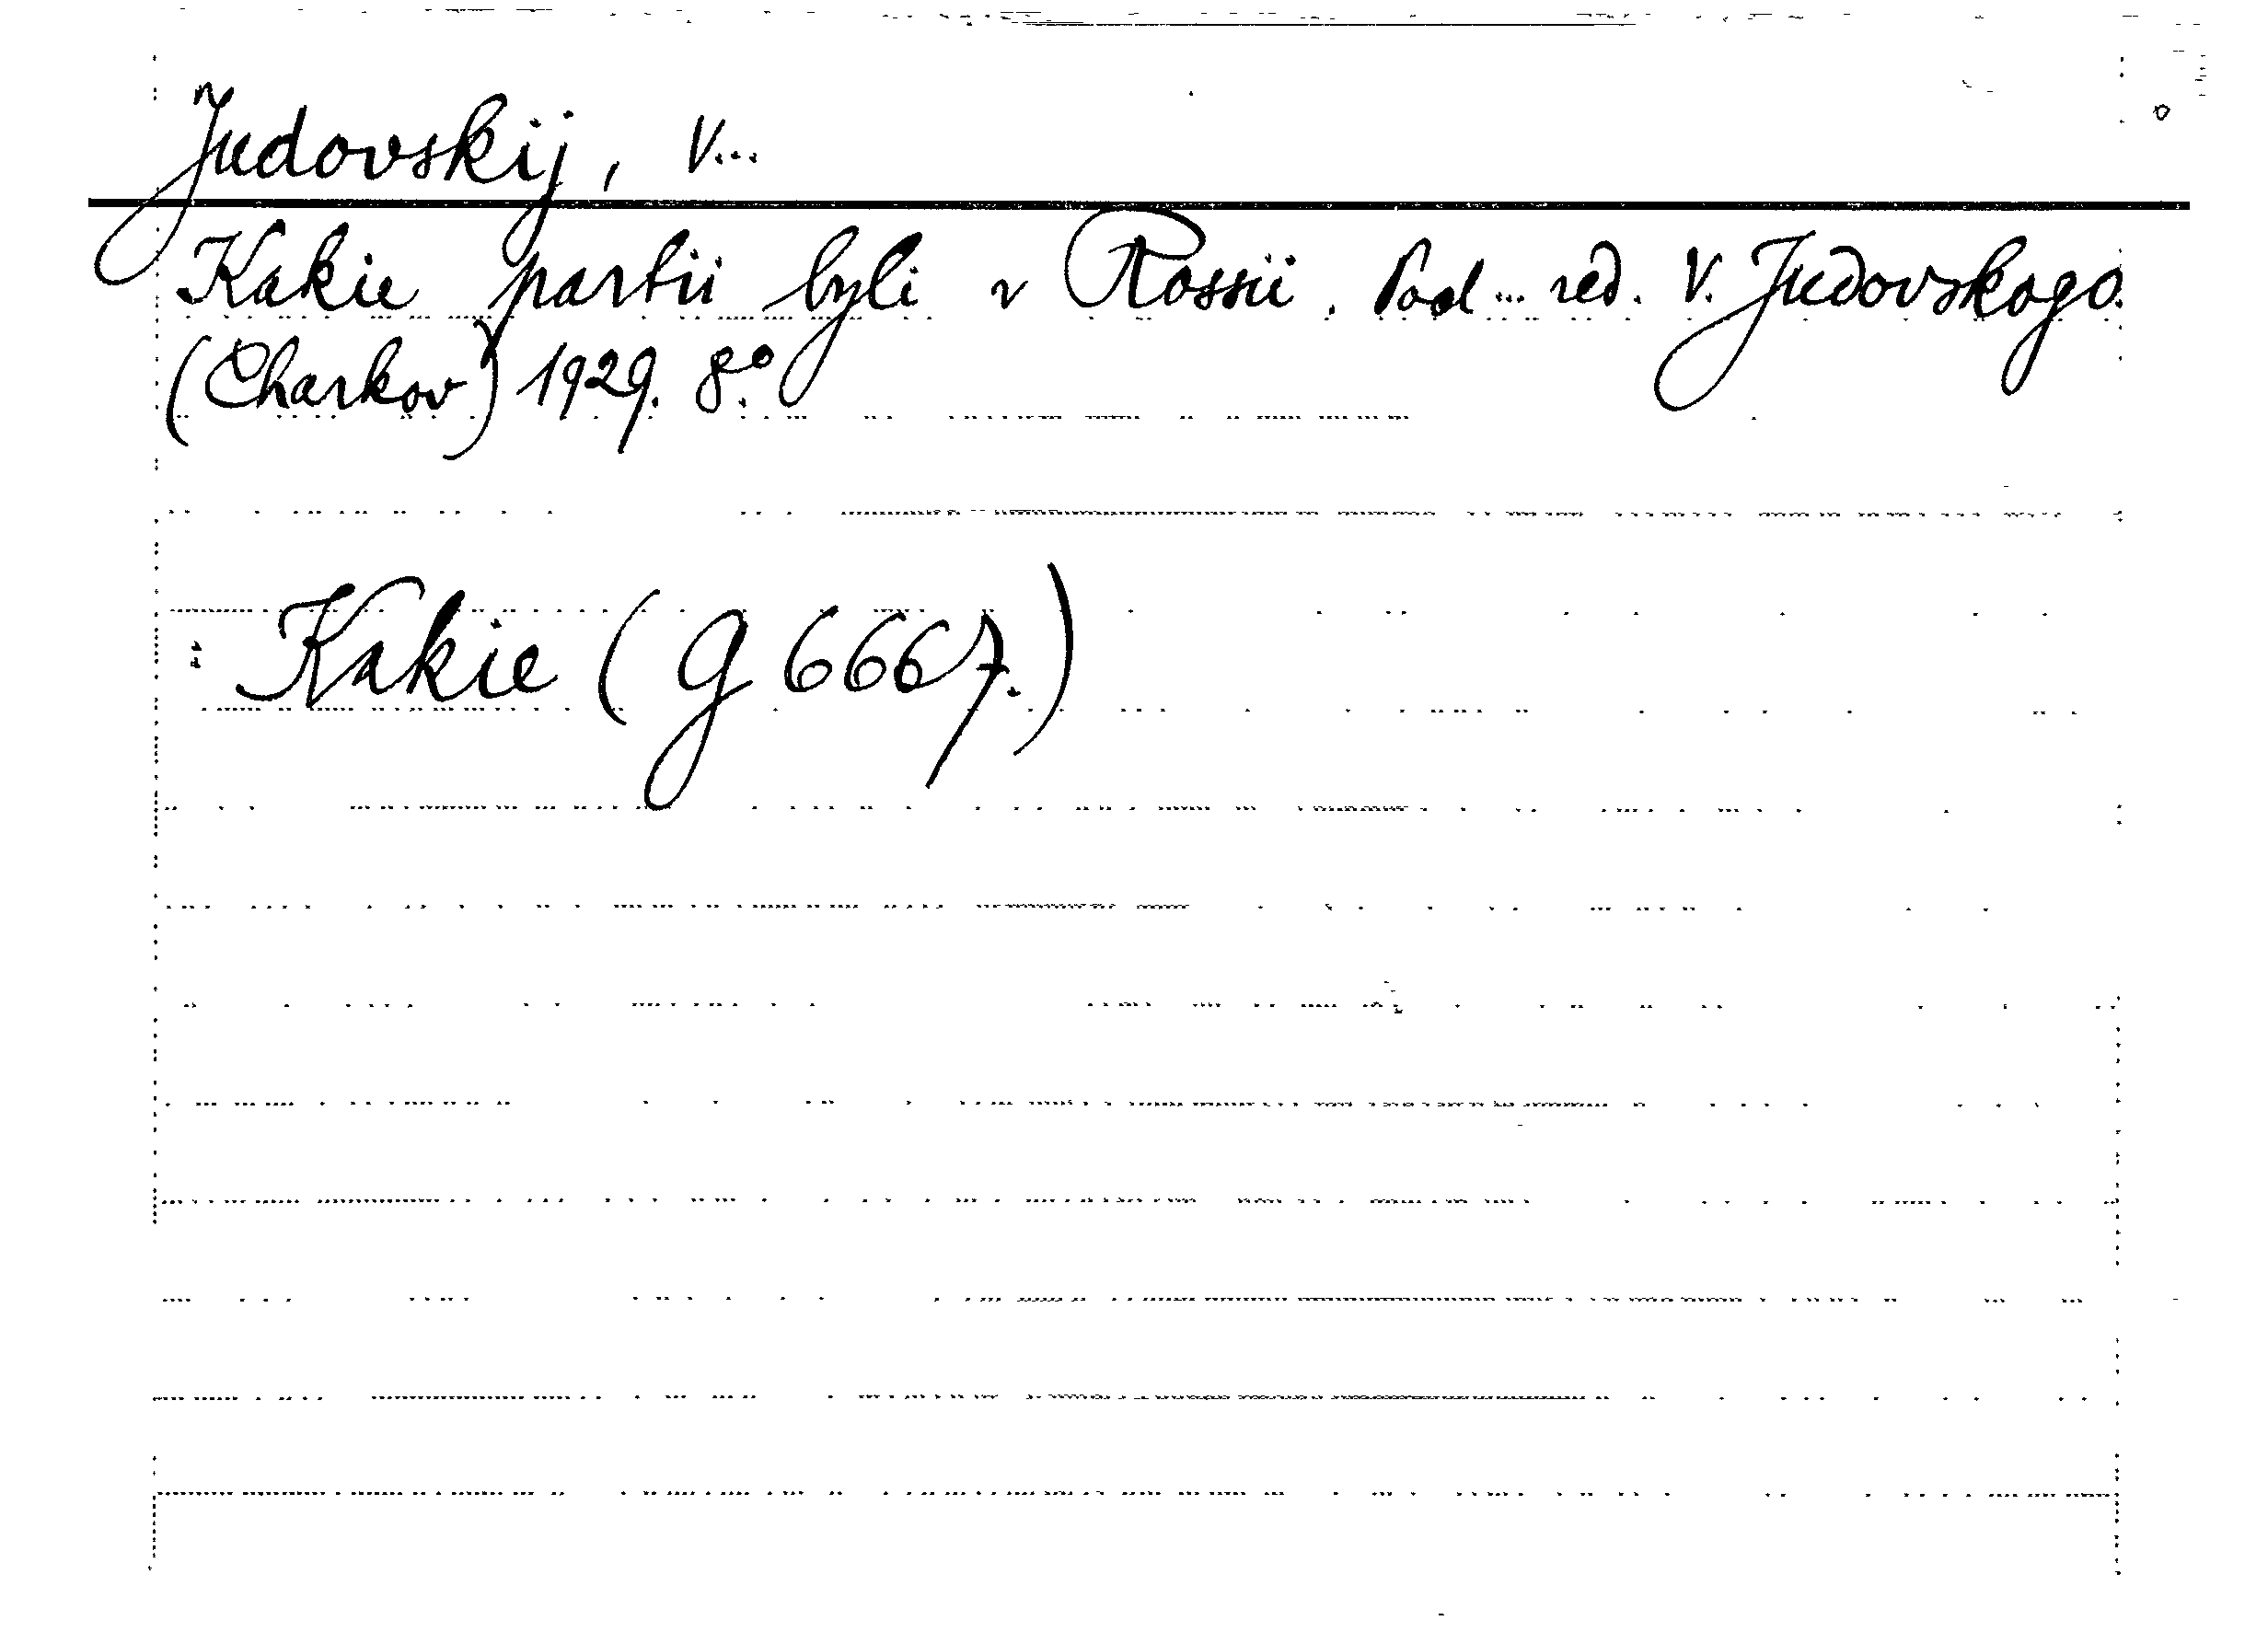 Judovskij, V...
Kakie partii byli v Rossii. Pod... red. V. Judovskogo.
(Charkov) 1929. 8°.
: Kakie (G 6667.)